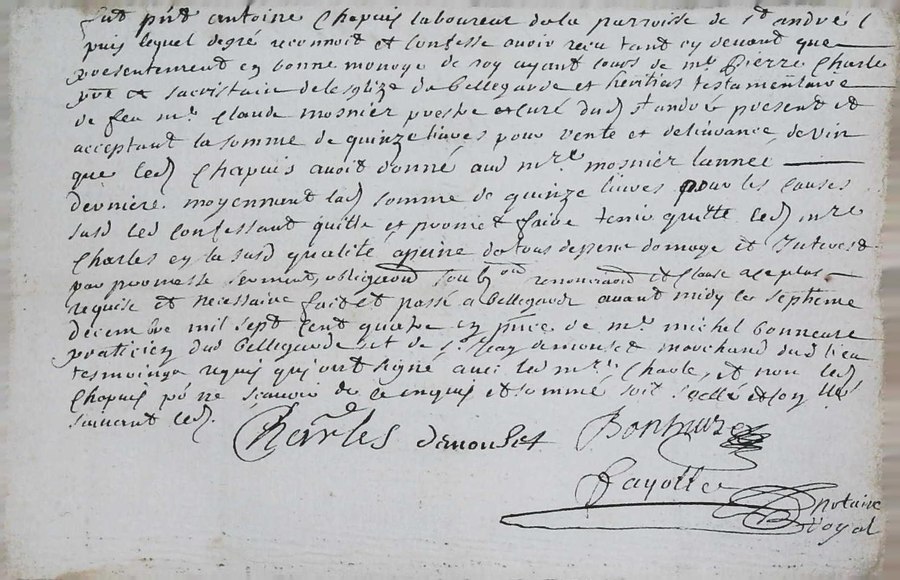 fut pnt antoine Chapuis laboureur de la parroisse de st andré l
puis lequel degré reconnoit et confesse avoir receu tant cy devant que
presentement en bonne monoye de roy ayant cours de mr Pierre Charle
pbre et sacristain de leglize de bellegarde et heritier testamentaire
de feu mr Claude mosnier prestre et curé dud st andré present et
acceptant la somme de quinze livres pour vente et delivrance de vin
que led Chapuis avoit donné aud mre mosnier lannée
derniere moyennant lad somme de quinze livres pour les causes
susd led confessant quitte et promet faire tenir quitte led mre
Charles en la susd qualité a peine de tous depens domage et Interest
par promesse serment, obligeant soub on renonciaon et clause a ce plus
requise et necessaire fait et passé a bellegarde avant midy le septieme
decembre mil sept cent quatre en pnce de mr michel bonneure
praticien dud bellegarde et de sr Jean demouset marchand dud lieu
tesmoings requis qui ont signé avec led mre Charle, et non led
Chapuis po ne scavoir de ce enquis et sommé soit scellé et
suivant led.
Charles demouset Bonhure
Fayolle notaire
royal